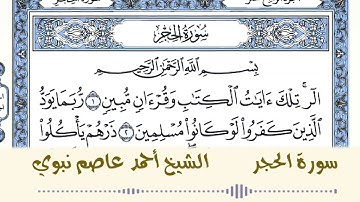 سُورَةُ الحِجْرِ
بِسْمِ اللَّهِ الرَّحْمَٰنِ الرَّحِيمِ
الٓر ۚ تِلْكَ ءَايَٰتُ ٱلْكِتَٰبِ وَقُرْءَانٍ مُّبِينٍ ١ رُّبَمَا يَوَدُّ
ٱلَّذِينَ كَفَرُوا۟ لَوْ كَانُوا۟ مُسْلِمِينَ ٢ ذَرْهُمْ يَأْكُلُوا۟
سورة الحجر الشيخ أحمد عاصم نبوي